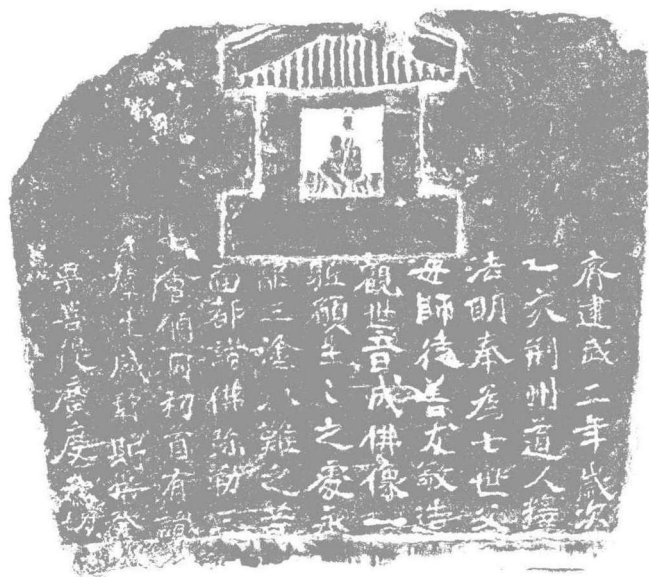 齊建武二年歲次
乙亥荊州道人釋
法明奉為七世父
母師徒善友敬造
觀世音成佛像一
軀願生々之處永
離三塗八難之苦
面都諸佛弥勒三
會初首有識
群生咸契斯
菩提廣度一切